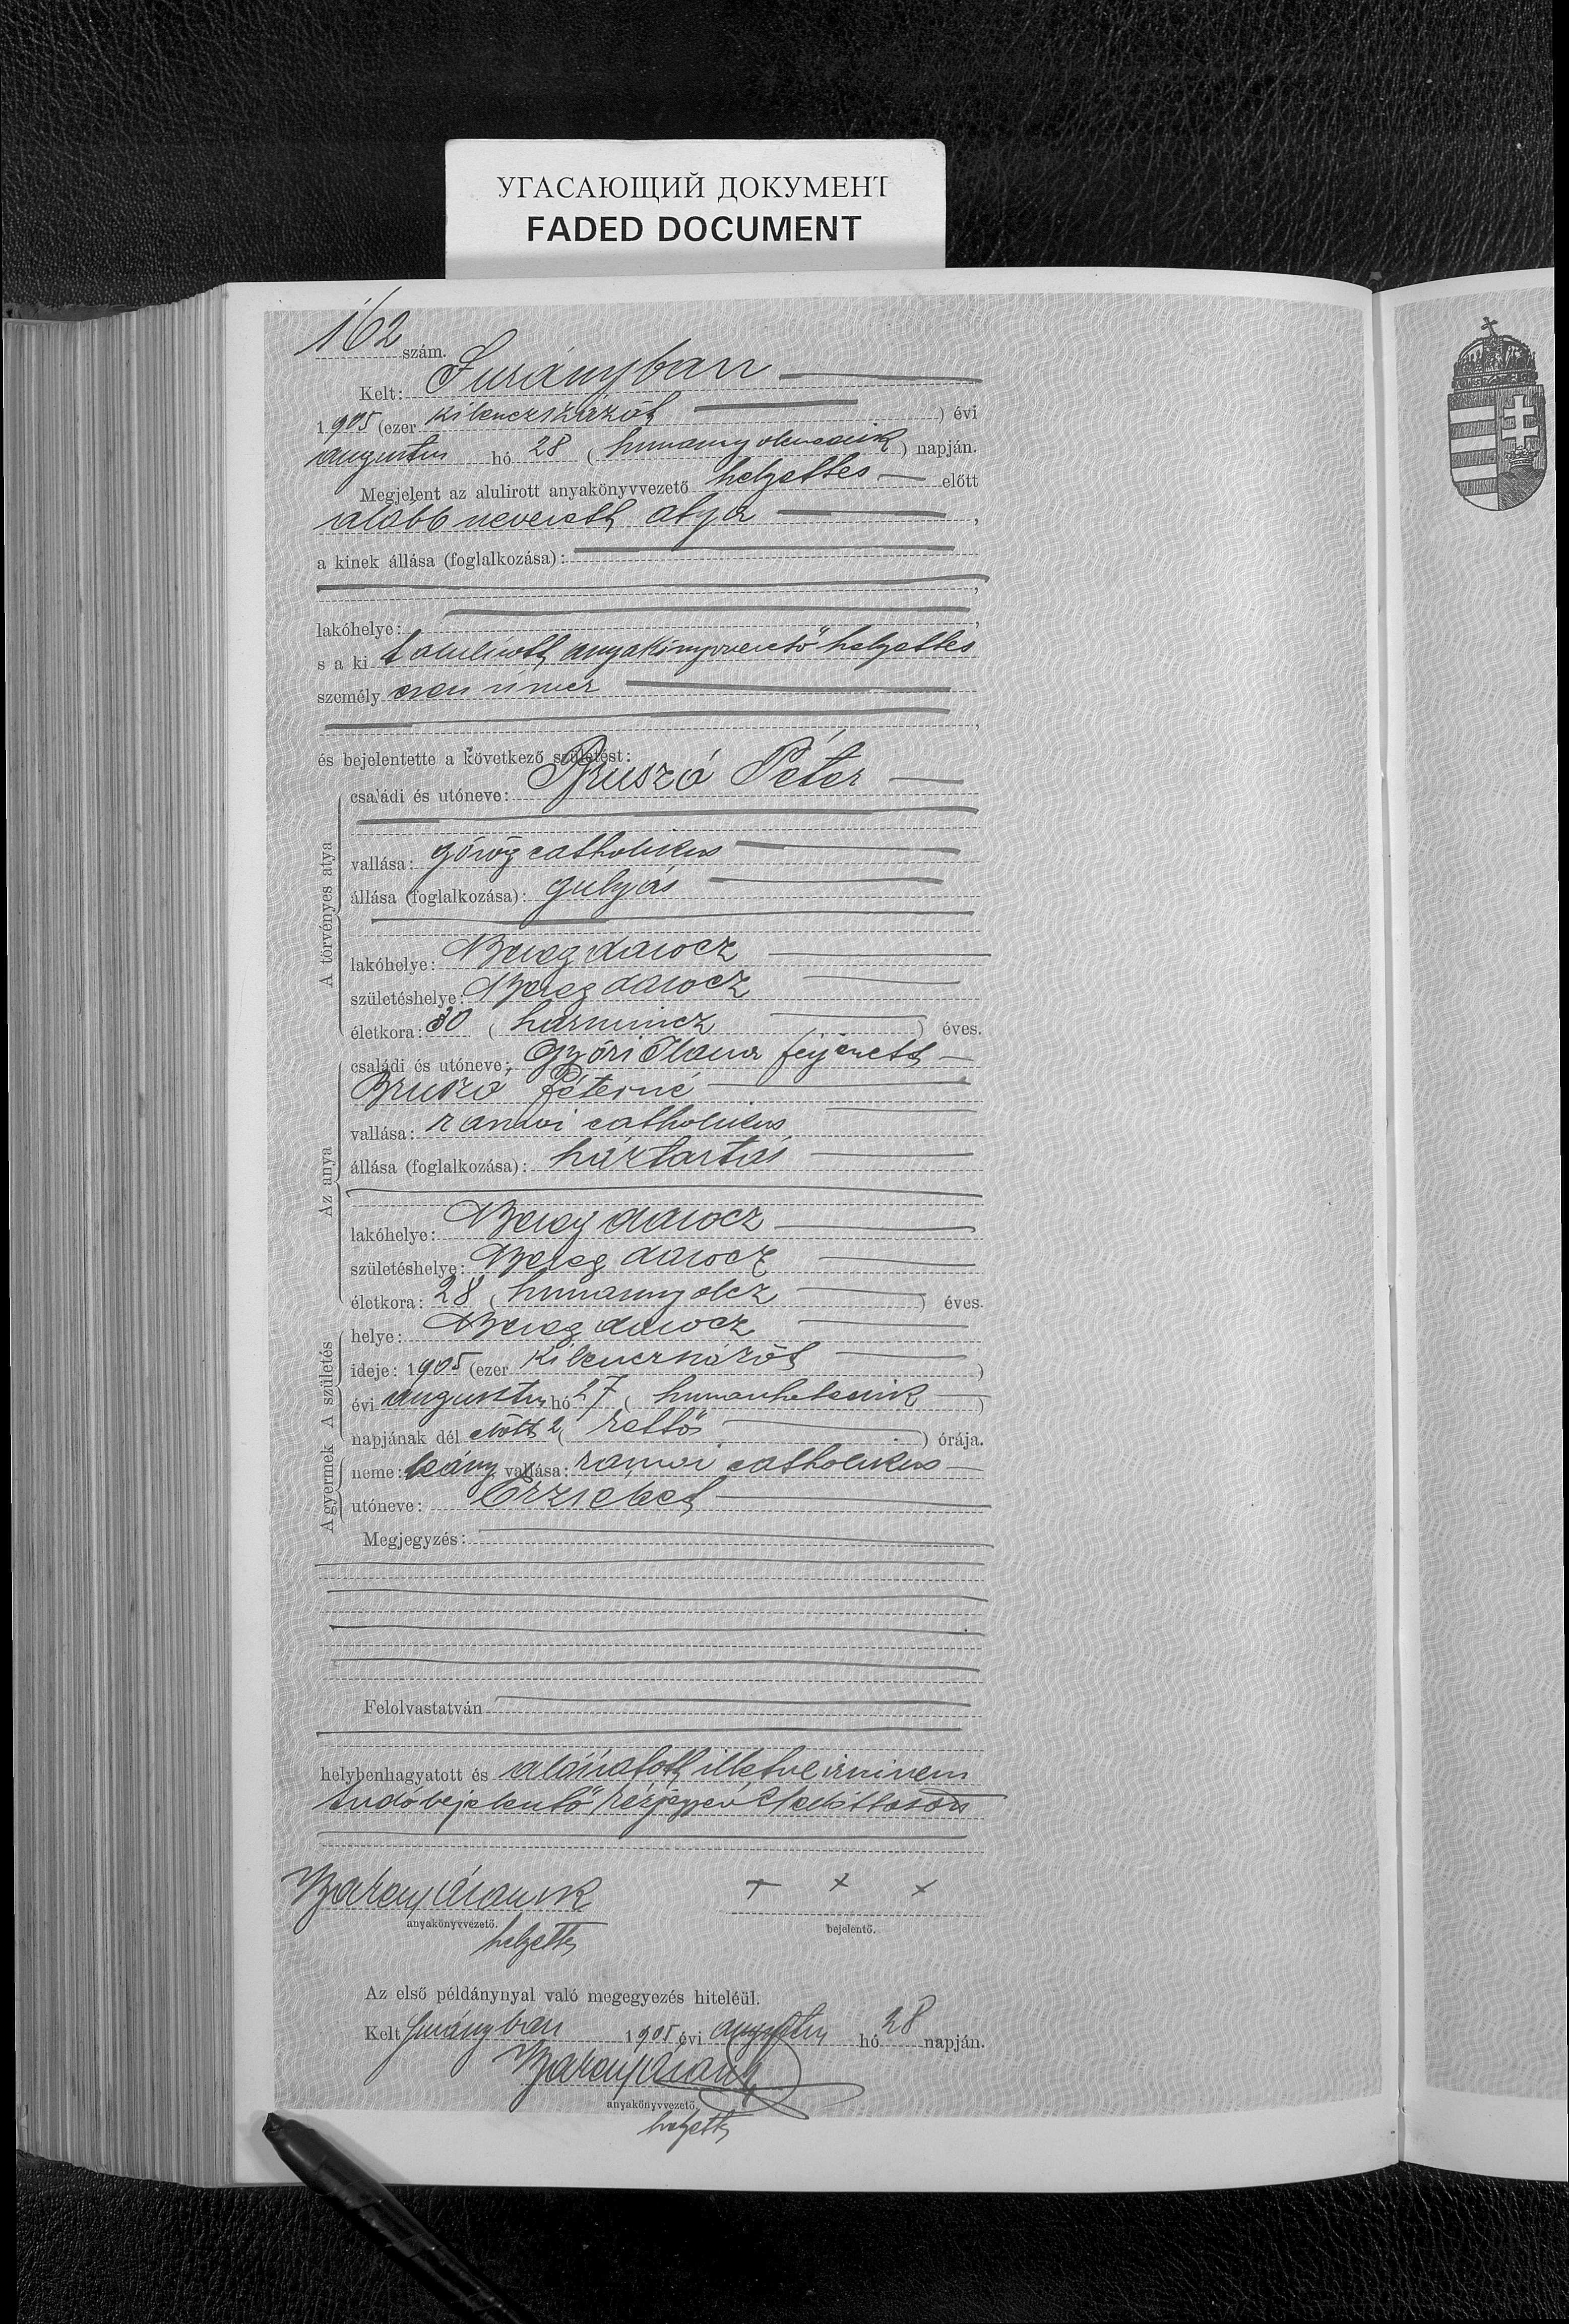 УГАСАЮЩИЙ ДОКУМЕНТ
FADED DOCUMENT
162 szám.
Kelt: Surányban
1905 (ezer kilenczszázöt) évi
augusztus hó 28 (huszonnyolcadik) napján.
Megjelent az alulirott anyakönyvvezető helyettes előtt
alább nevezett atya,
a kinek állása (foglalkozása):
lakóhelye:
s a ki t alulirott anyakönyvvezető helyettes
személy esen ismer
és bejelentette a következő születést:
A törvényes atya
családi és utóneve: Bruszó Péter
vallása: görög catholikus
állása (foglalkozása): gulyás
lakóhelye: Bereg darocz
születéshelye: Bereg darocz
életkora: 30 (harmincz) éves.
Az anya
családi és utóneve: Győri Ilona férjezett
Bruszó Péterné
vallása: római catholikus
állása (foglalkozása): háztartás
lakóhelye: Bereg darocz
születéshelye: Bereg darocz
életkora: 28 (huszonnyolcz) éves.
A születés
helye: Bereg darocz
ideje: 1905 (ezer kilenczszázöt)
évi augusztus hó 27 (huszonhetedik)
napjának dél előtt 2 (kettő) órája.
A gyermek
neme: leány vallása: római catholikus
utóneve: Erzsébet
Megjegyzés:
Felolvastatván
helybenhagyatott és aláíratott, illetve irni nem
tudó bejelentő kézjegyével elláttatott
anyakönyvvezető.
helyettes
+ + +
bejelentő.
Az első példánynyal való megegyezés hiteléül.
Kelt Surányban 1905 évi augusztus hó 28 napján.
anyakönyvvezető,
helyettes